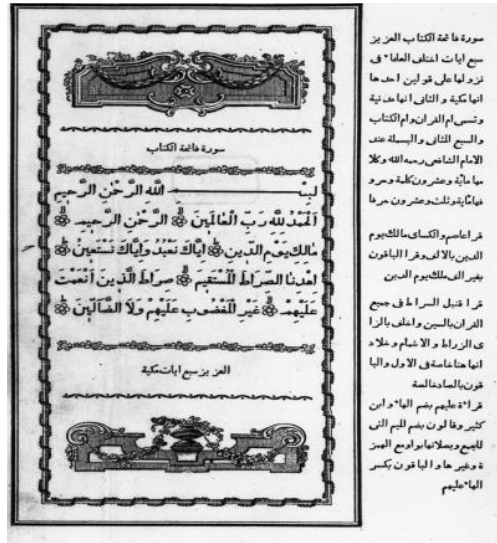 سورة فاتحة الكتاب
بسم الله الرَّحْمٰنِ الرَّحِيمِ
اَلْحَمْدُ لِلّٰهِ رَبِّ الْعَالَمِينَ الرَّحْمٰنِ الرَّحِيمِ
مَالِكِ يَوْمِ الدِّينِ اِيَّاكَ نَعْبُدُ وَاِيَّاكَ نَسْتَعِينُ
اِهْدِنَا الصِّرَاطَ الْمُسْتَقِيمَ صِرَاطَ الَّذِينَ اَنْعَمْتَ
عَلَيْهِمْ غَيْرِ الْمَغْضُوبِ عَلَيْهِمْ وَلَا الضَّالِّينَ
العزيز سبع ايات مكية
سورة فاتحة الكتاب العزيز
سبع ايات اختلف العلماء فى
نزولها على قولين احدها
انها مكية و الثانى انها مدنية
وتسمى ام القران وام الكتاب
والسبع المثانى والبسملة عند
الامام الشافعى رحمه الله وكلا
مها ماية وعشرون كلمة وحرو
فها ماية وثلث وعشرون حرفا
قرا عاصم والكساى مالك يوم
الدين بالالف وقرا الباقون
بغير الف ملك يوم الدين
قرا قنبل السراط فى جميع
القران بالسين وخلف بالزا
ى الزراط و الاشمام وخلاد
انها هنا خاصة فى الاول والبا
قون بالصاد خالصة
قراءة عليهم بضم الهاء وابن
كثير وقالون بضم الميم التى
للجمع وبصلانها بواو مع الهمز
ة وغيرها والباقون بكسر
الهاء عليهم